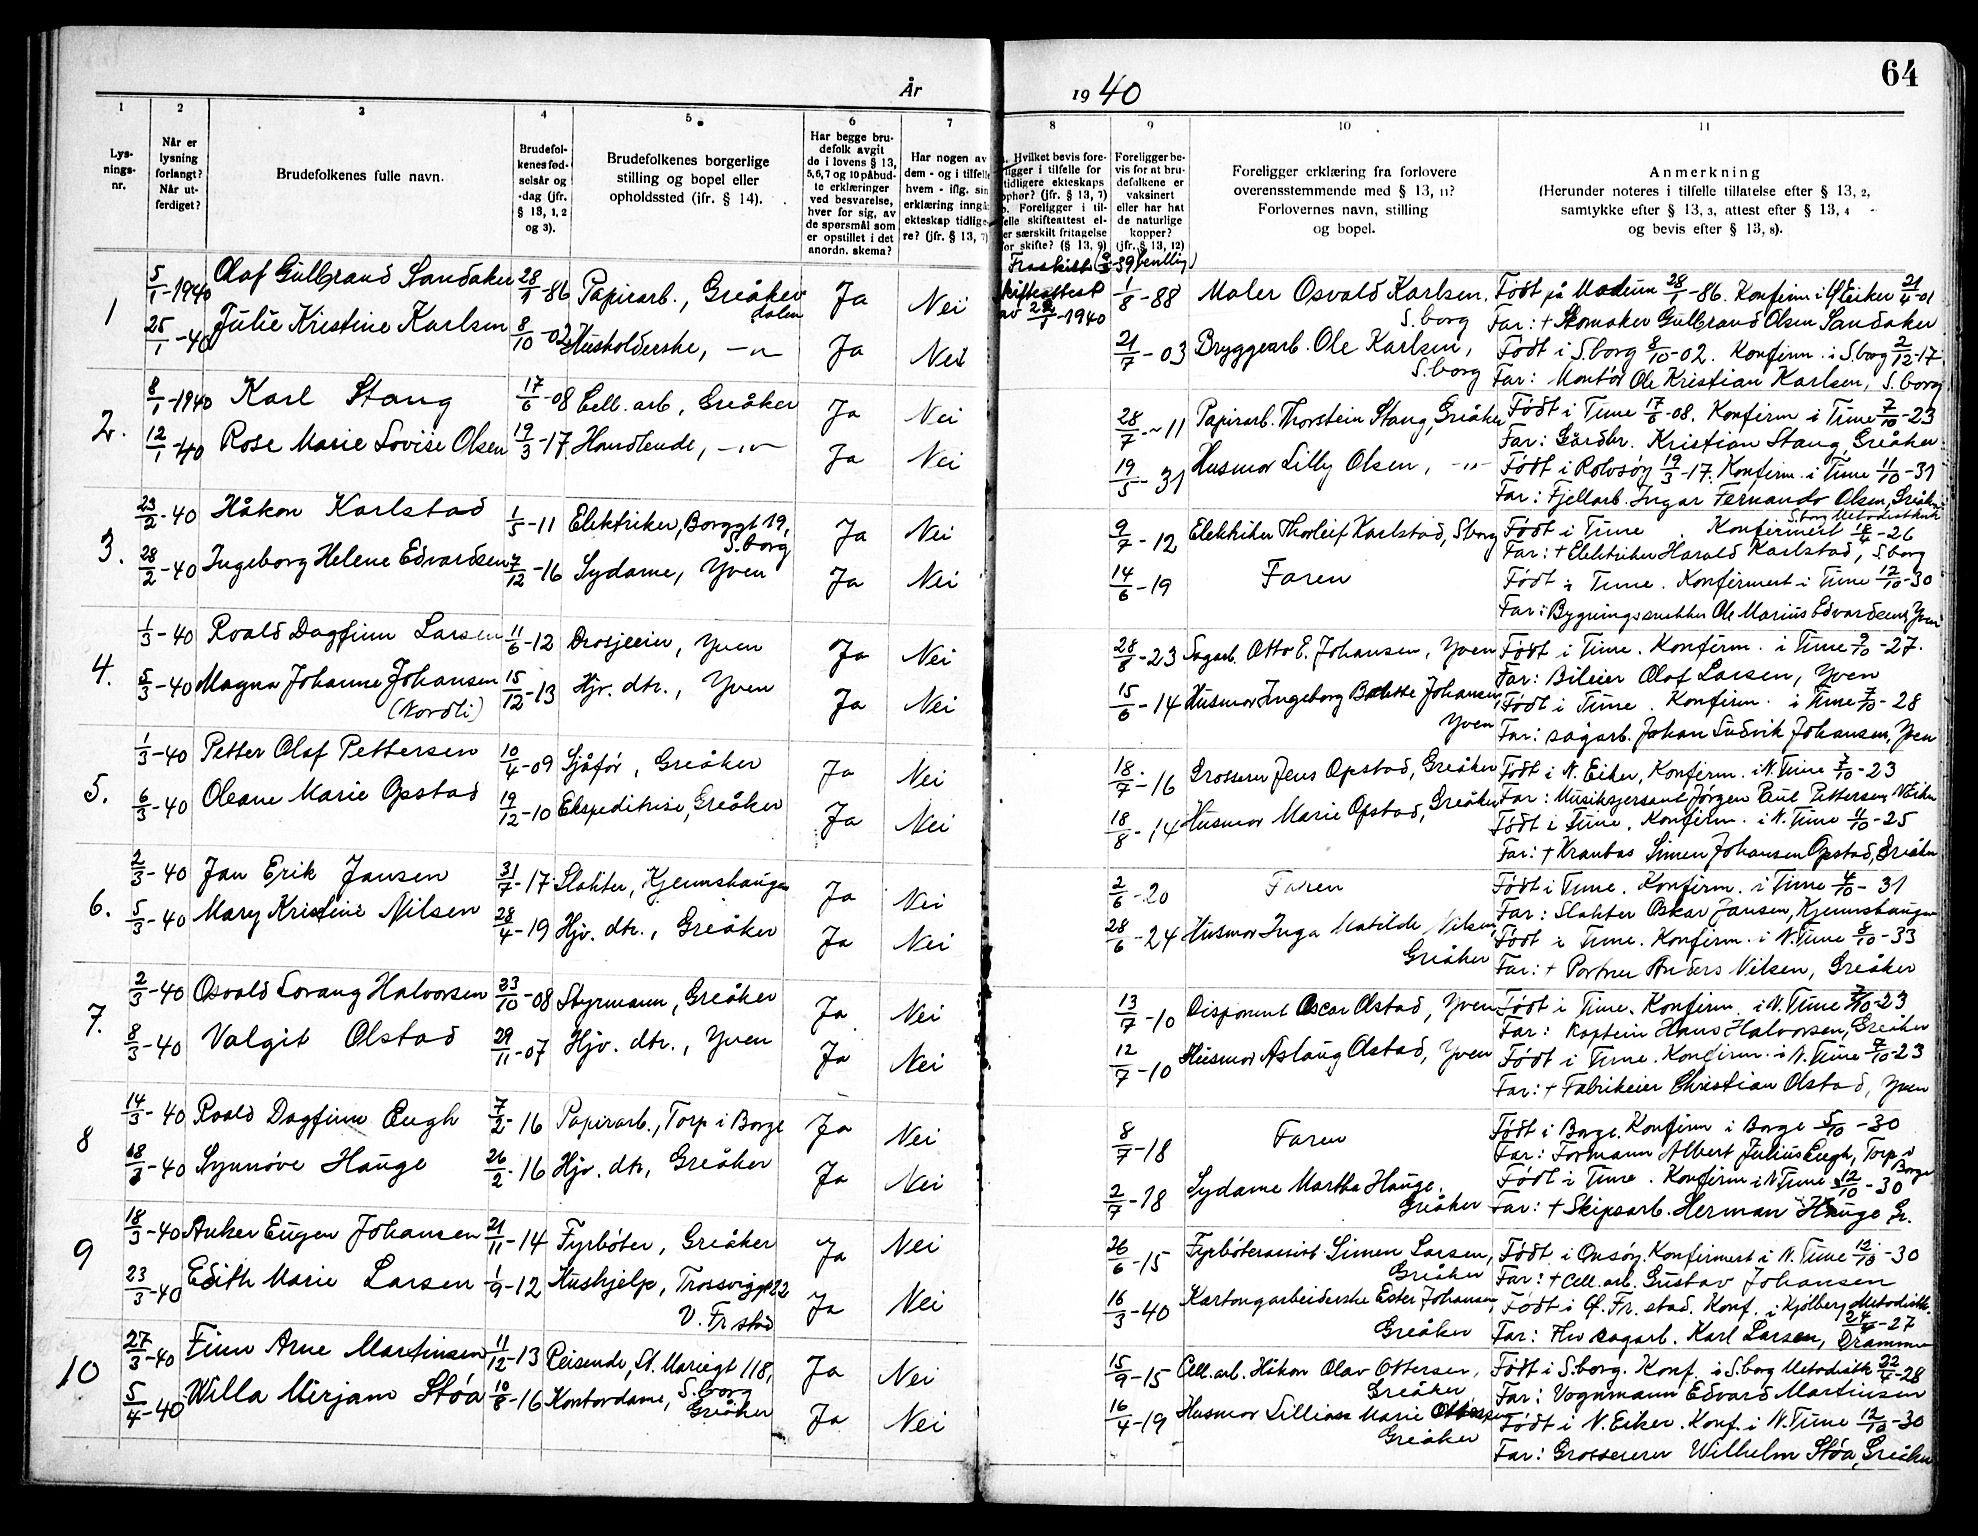 64
År 1940
1
2
3
4
5
6
7
8
9
10
11
Lys-
nings-
nr.
Når er
lysning
forlangt?
Når ut-
ferdiget?
Brudefolkenes fulle navn.
Brudefol-
kenes fød-
selsår og
-dag (jfr.
§ 13, 1, 2
og 3).
Brudefolkenes borgerlige
stilling og bopel eller
opholdssted (jfr. § 14).
Har begge bru-
defolk avgit
de i lovens § 13,
5, 6, 7 og 10 påbud-
te erklæringer
ved besvarelse,
hver for sig, av
de spørsmål som
er opstillet i det
anordn. skema?
Har nogen av
dem - og i tilfelle
hvem - iflg. sin
erklæring inngå
ekteskap tidlige
re? (jfr. § 13, 7)
Hvilket bevis fore-
ligger i tilfelle for
tidligere ekteskaps
ophør? (jfr. § 13, 7)
Foreligger i til-
felle skifteattest el-
ler særskilt fritagelse
for skifte? (§ 13, 9)
Foreligger be-
vis for at bru-
defolkene er
vaksinert
eller har hat
de naturlige
kopper?
(jfr. § 13, 12)
Foreligger erklæring fra forlovere
overensstemmende med § 13, 11?
Forlovernes navn, stilling
og bopel.
Anmerkning
(Herunder noteres i tilfelle tillatelse efter § 13, 2,
samtykke efter § 13, 3, attest efter § 13, 4
og bevis efter § 13, 8).
1
5/1-1940 Olaf Gulbrand Sandaker 28/1-86 Papirarb., Greåker dalen Ja Nei Skifteattest av 22/1-1940 1/8-88 Maler Osvald Karlsen, S.borg Født på Modum 28/1-86. Konfirm i Ø.eiker 21/4-01
Far: + Skomaker Gulbrand Olsen Sandaker
25/1-40 Julie Kristine Karlsen 8/10-02 Husholderske, -"- Ja Nei 21/7-03 Bryggearb. Ole Karlsen, S.borg Født i S.borg 8/10-02. Konfirm. i S.borg 2/12-17
Far: Montør Ole Kristian Karlsen, S.borg
2.
8/1-1940 Karl Stang 17/6-08 Cell. arb, Greåker Ja Nei 28/7-11 Papirarb. Thorstein Stang, Greåker Født i Tune 17/6-08. Konfirm i Tune 7/10-23
Far: Gårdbr. Kristian Stang, Greåker
12/1-40 Rose Marie Lovise Olsen 19/3-17 Handlende, -"- Ja Nei 19/5-31 Husmor Lilly Olsen, -"- Født i Rolvsøy 19/3-17. Konfirm. i Tune 11/10-31
Far: Fjellarb. Ingar Fernando Olsen, Greåker
3.
23/2-40 Håkon Karlstad 1/5-11 Elektriker, Borggt 19, S.borg Ja Nei 9/7-12 Elektriker Thorleif Karlstad, Sborg Født i Tune. Konfirmert S.borg Metodistkirk 18/4-26
Far: + Elektriker Harald Karlstad, S.borg
28/2-40 Ingeborg Helene Edvardsen 7/12-16 Sydame, Yven Ja Nei 14/6-19 Faren Født i Tune. Konfirmert i Tune 12/10-30
Far: Bygningssnekker Ole Marius Edvardsen, Yven
4.
1/3-40 Roald Dagfinn Larsen 11/6-12 Drosjeeier, Yven Ja Nei 28/8-23 Sagarb. Otto E. Johansen, Yven Født i Tune. Konfirm. i Tune 9/10-27.
Far: Bileier Olaf Larsen, Yven
5/3-40 Magna Johanne Johansen (Nordli) 15/12-13 Hjv. dtr., Yven Ja Nei 15/6-14 Husmor Ingeborg Johansen, Yven Født i Tune. Konfirm. i Tune 7/10-28
Far: sagarb. Johan Ludvik Johansen, Yven
5.
1/3-40 Petter Olaf Pettersen 10/4-09 Sjåfør, Greåker Ja Nei 18/7-16 Grosserer Jens Opstad, Greåker Født i N. Eiker, Konfirm. i N. Tune 7/10-23
Far: Musiksjersant Jørgen Paul Pettersen, N.Eiker
6/3-40 Oleane Marie Opstad 19/12-10 Ekspeditrise, Greåker Ja Nei 18/8-14 Husmor Marie Opstad, Greåker Født i Tune. Konfirm. i N. Tune 11/10-25
Far: + Kranbas Simen Johansen Opstad, Greåker
6.
2/3-40 Jan Erik Jansen 31/7-17 Slakter, Kjennshaugen Ja Nei 2/6-20 Faren Født i Tune. Konfirm. i Tune 4/10-31
Far: Slakter Oskar Jansen, Kjennshaugen
5/3-40 Mary Kristine Nilsen 28/4-19 Hjv. dtr., Greåker Ja Nei 28/6-24 Husmor Inga Matilde Nilsen, Greåker Født i Tune. Konfirm. i N. Tune 8/10-33
Far: + Portner Anders Nilsen, Greåker
7.
2/3-40 Osvald Lorang Halvorsen 23/10-08 Styrmann, Greåker Ja Nei 13/7-10 Disponent Oscar Olstad, Yven Født i Tune. Konfirm. i N. Tune 7/10-23
Far: Kaptein Hans Halvorsen, Greåker
8/3-40 Valgit Olstad 29/11-07 Hjv. dtr., Yven Ja Nei 12/7-10 Husmor Aslaug Olstad, Yven Født i Tune. Konfirm. i N. Tune 7/10-23
Far: + Fabrikeier Christian Olstad, Yven
8
14/3-40 Roald Dagfinn Eugh 7/2-16 Papirarb., Torp i Borge Ja Nei 8/7-18 Faren Født i Borge. Konfirm i Borge 5/10-30
Far: Formann Albert Julius Eugh, Torp i Borge
18/3-40 Synnøve Hauge 26/2-16 Hjv. dtr, Greåker Ja Nei 2/7-18 Sydame Martha Hauge, Greåker Født i Tune. Konfirm i N. Tune 12/10-30
Far: + Skipsarb. Herman Hauge Gr.
9
18/3-40 Anker Eugen Johansen 21/11-14 Fyrbøter, Greåker Ja Nei 26/6-15 Fyrbøterassist. Simen Larsen, Greåker Født i Onsøy. Konfirmert i N. Tune 12/10-30
Far: + Cell. arb. Gustav Johansen
23/3-40 Edith Marie Larsen 1/9-12 Hushjelp, Trosviggt 22 V. Fr stad Ja Nei 16/3-40 Kartongarbeiderske Ester Johansen, Greåker Født i Gl. Fr. stad. Konf. i Kjølberg Metodistk. 24/4-27
Far: Hv sagarb. Karl Larsen, Drammen
10
27/3-40 Finn Arne Martinsen 11/12-13 Reisende, St. Mariegt 118, S.borg Ja Nei 15/9-15 Cell. arb. Håkon Olav Ottersen, Greåker Født i S.borg. Konf. i S.borg Metodistk 22/4-28
Far: Vognmann Edvard Martinsen
5/4-40 Willa Mirjam Støa 10/8-16 Kontordame, Greåker Ja Nei 16/4-19 Husmor Marie Ottersen, Greåker Født i N. Eiker. Konf. i N. Tune 12/10-30
Far: Grosserer Wilhelm Støa, Greåker